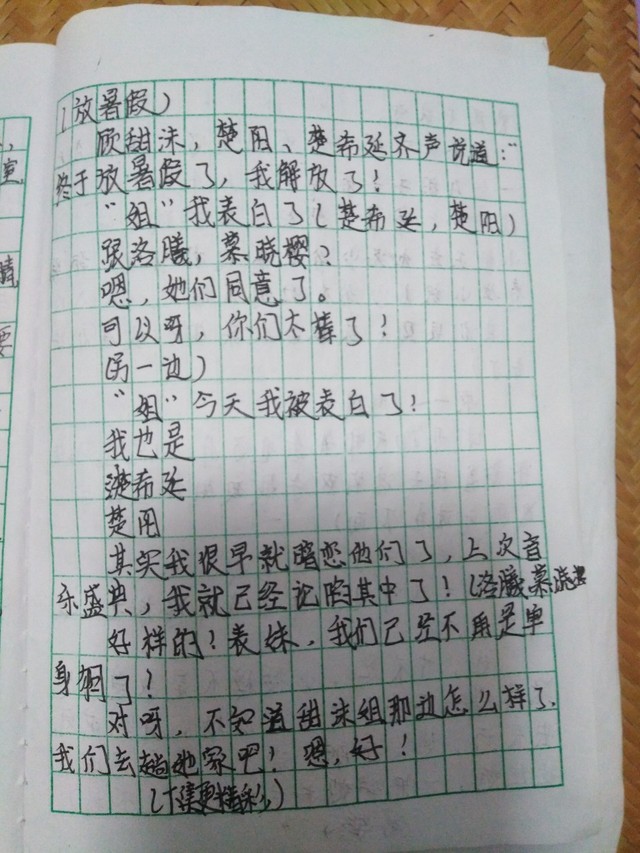 (放暑假)
顾甜沫，楚阳、楚希延齐声说道："
终于放暑假了，我解放了！
"姐"我表白了(楚希延，楚阳)
跟洛曦，慕晓樱？
嗯，她们同意了。
可以呀，你们太棒了！
(另一边)
"姐"今天我被表白了！
我也是
楚希延
楚阳
其实我很早就暗恋他们了，上次音
乐盛典，我就已经记陷其中了！(洛曦慕
好样的！表妹，我们已经不再是单
身狗了！
对呀，不知道甜沫姐那边怎么样了，
我们去趟她家吧！嗯，好！
(下集更精彩)